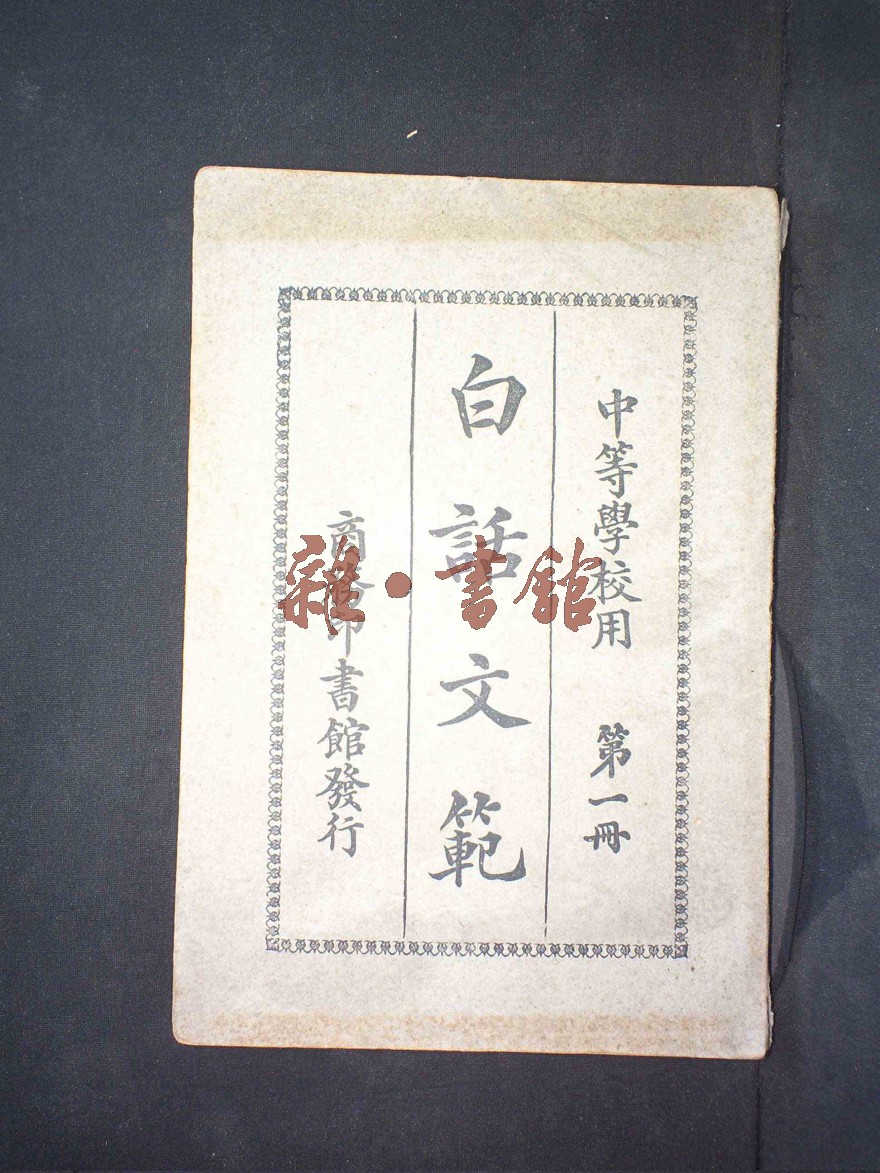 中等學校用 第一冊
白話文範
商務印書館發行
雜·書館